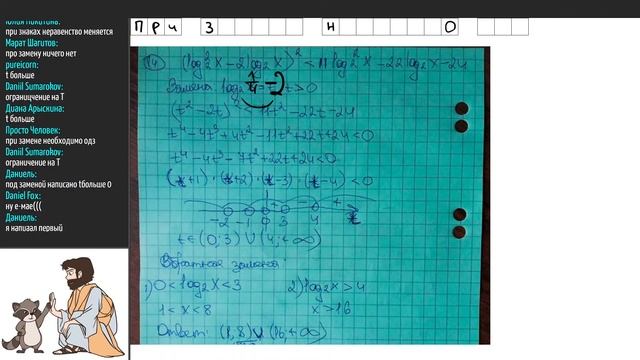 П р и З Н О
Юлия Никитина:
при знаках неравенство меняется
Марат Шагитов:
про замену ничего нет
pureicorn:
t больше
Daniil Sumarokov:
ограницчение на Т
Диана Арыснина:
t больше
Просто Человек:
при замене необходимо одз
Daniil Sumarokov:
ограничение на Т
Даниель:
под заменой написано tбольше 0
Daniel Fox:
ну е-мае(((
Даниель:
я напиаал первый
14 (log₂²x - 2log₂x)² < 11log₂²x - 22log₂x - 24
Замена log₂ t > 0
(t² - 2t)² < 11t² - 22t - 24
t⁴ - 4t³ + 4t² - 11t² + 22t + 24 < 0
t⁴ - 4t³ - 7t² + 22t + 24 < 0
(t+1)·(t+2)·(t-3)·(t-4) < 0
-2 -1 0 3 4
t∈(0;3)∪(4;+∞)
Обратная замена:
1) 0 < log₂x < 3 2) log₂x > 4
1 < x < 8 x > 16
Ответ: (1,8)∪(16,+∞)